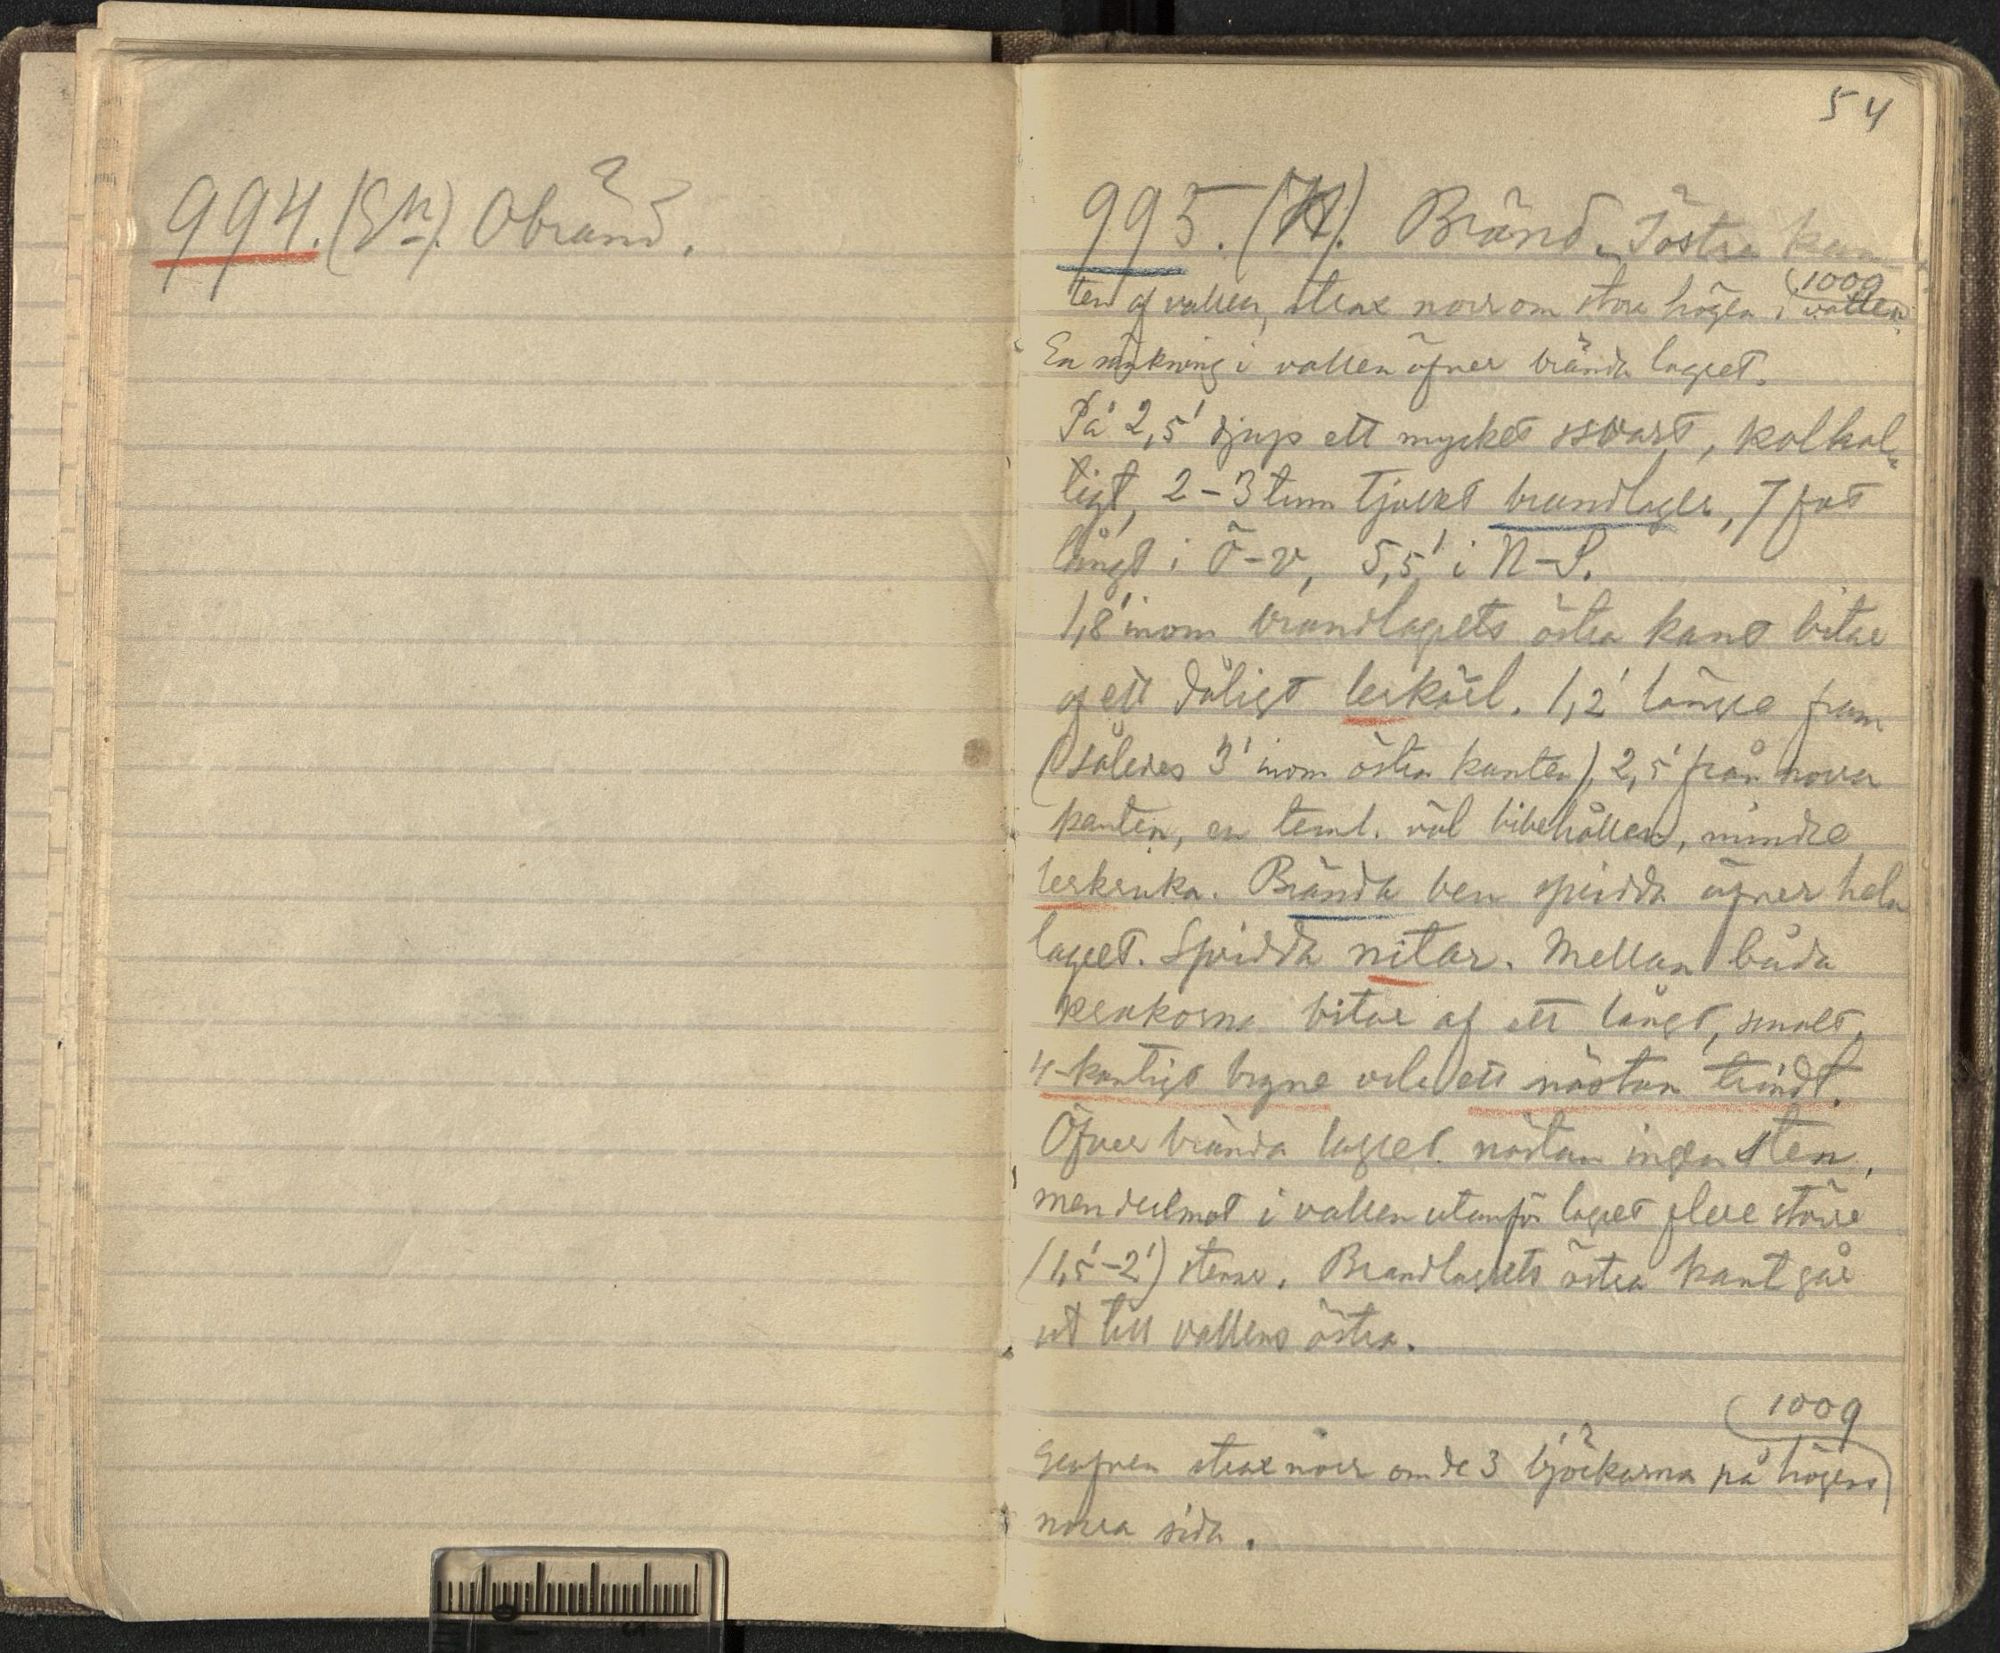 994. (En). Obränd.
54
995. (H). Bränd. I östra kan-
1009
ten af vallen, strax norr om stora högen i vallen.
En sänkning i vallen öfver brända lagret.
På 2,5' djup ett mycket svart, kolhal-
tigt, 2-3 tum tjockt brandlager, 7 fot
långt i Ö-V, 5,5' i N-S.
1,8' inom brandlagrets östra kant bitar
af ett dåligt lerkärl. 1,2' längre fram
(således 3' inom östra kanten), 2,5' från norra
kanten, en teml. väl bibehållen, mindre
lerkruka. Brända ben spridda öfver hela
lagret. Spridda nitar. Mellan båda
krukorna bitar af ett långt, smalt,
4-kantigt bryne och ett nästan trindt.
Öfver brända lagret nästan ingen sten,
men deremot i vallen utanför lagret flere större
(1,5'-2') stenar. Brandlagrets östra kant går
ut till vallens östra.
1009
Grafven strax norr om de 3 björkarna på högens
norra sida.